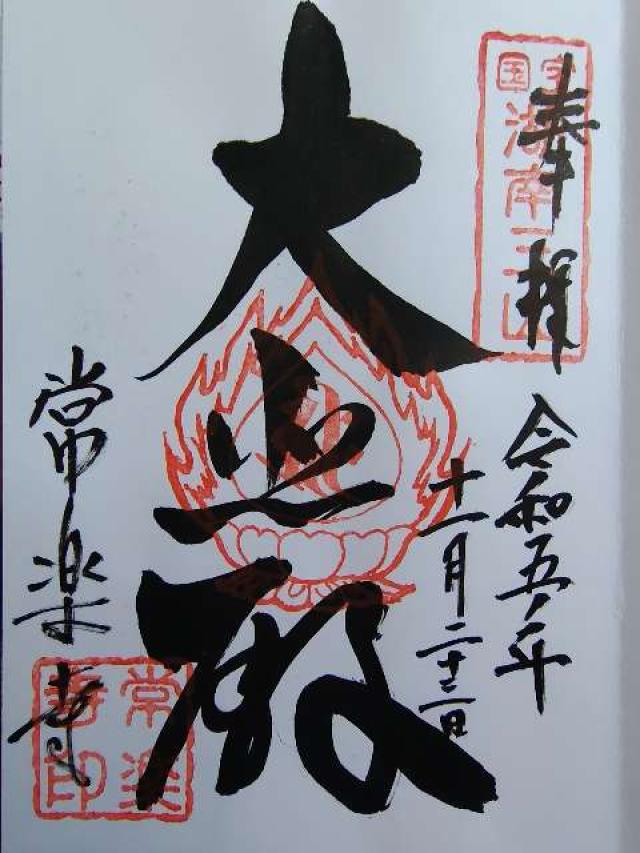 奉拝
国宝
湖南三山
令和五年
十一月二十二日
大悲殿
常楽寺
常楽寺印